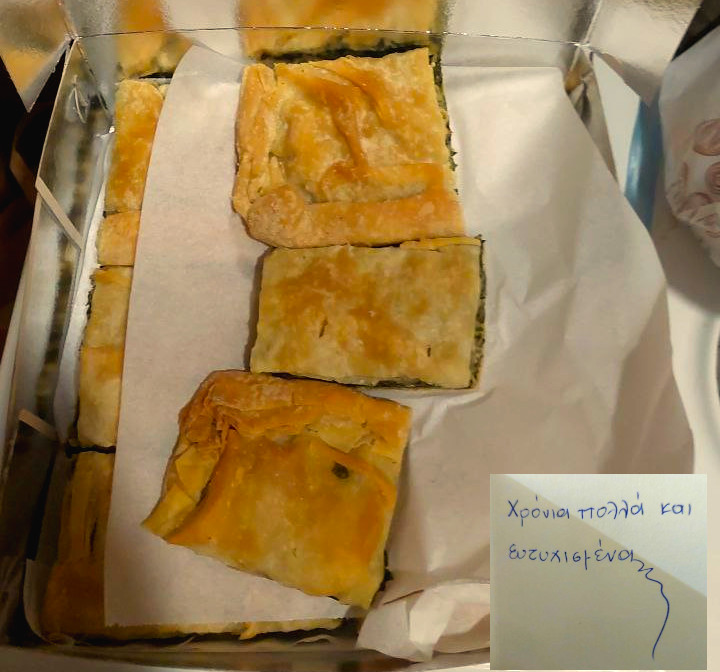 Χρόνια πολλά και
ευτυχισμένα